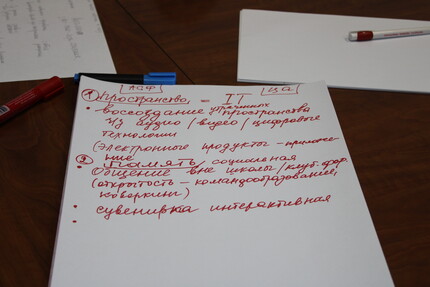 АСФ ЦА
① Пространство = IT
• воссоздание утраченных пространства
из аудио / видео / цифровые
технологии
(Электронные продукты – приложе-
ние
② Память социальная
Общение вне школы / клуб. фор.
(открытость – командообразование,
коворкинги)
• сувенирка интерактивная